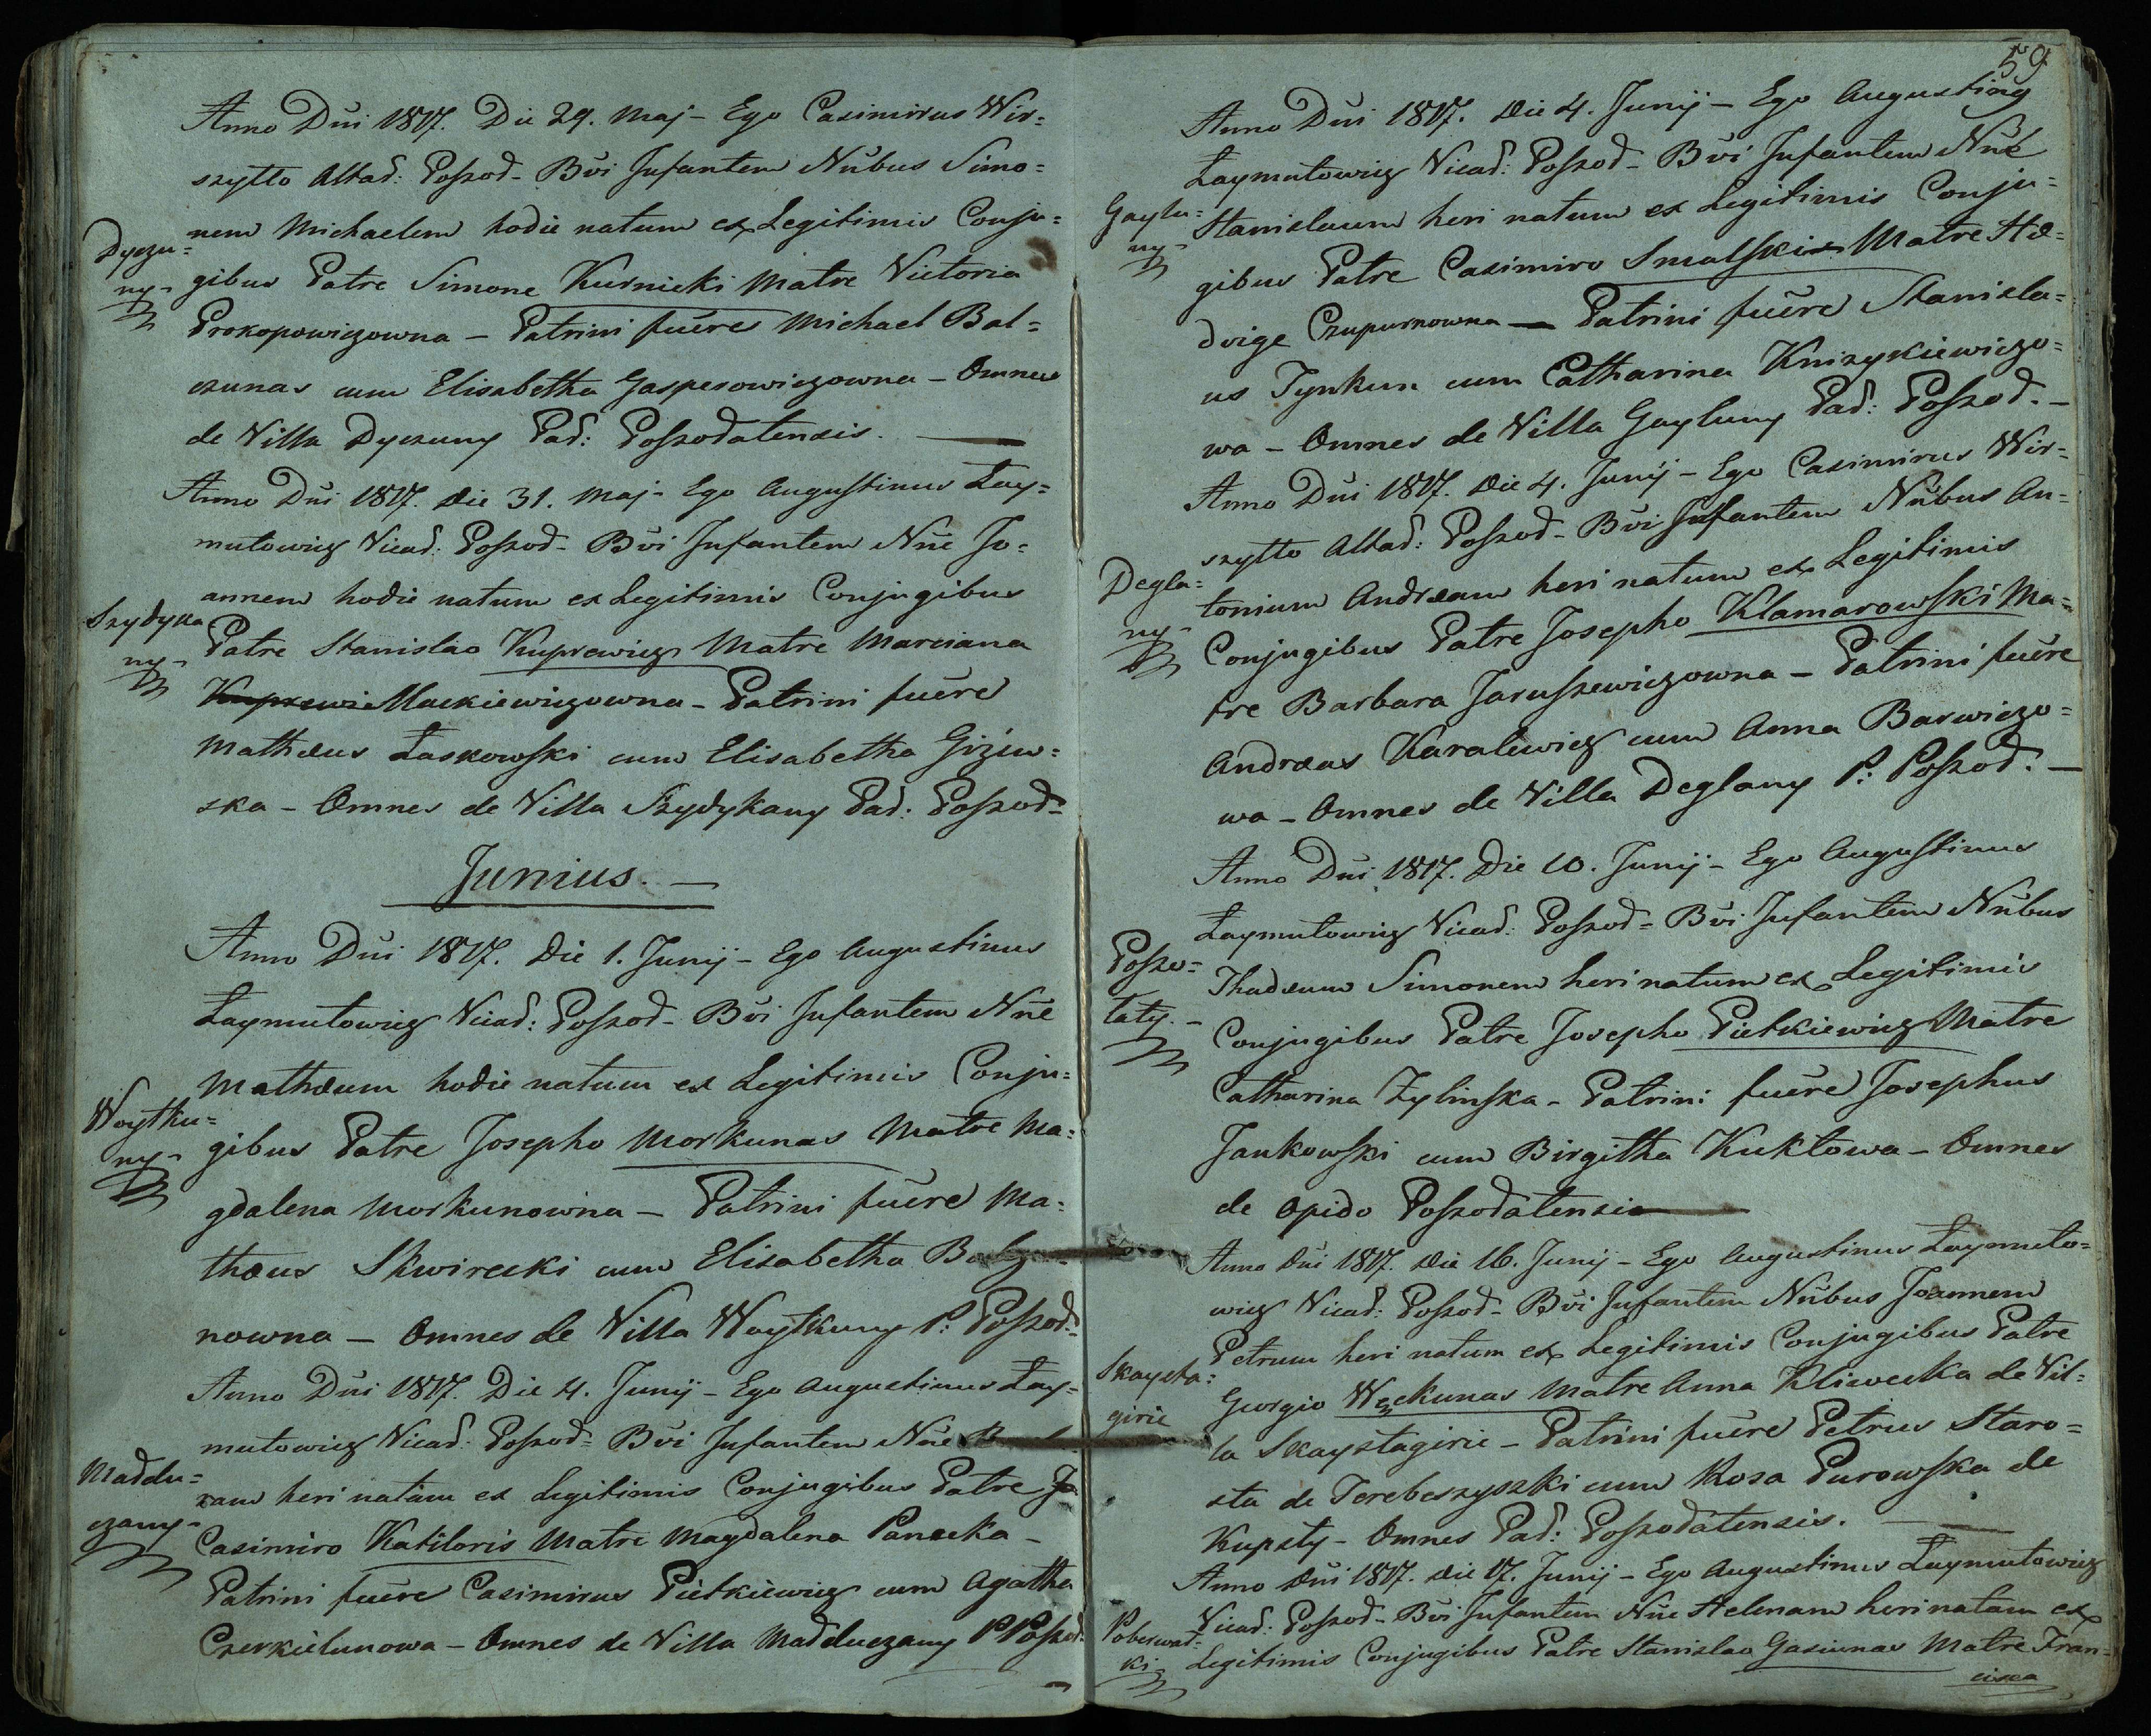 Anno Dni 1817. Die 29. Maj - Ego Casimirus Wir=
szytto Altad: Poszod- Bvi Infantem Nnbus Simo=
nem Michaelem hodie natum ex Legitimis Conju=
Dyczu=
ny-
gibus Patre Simone Kurnicki Matre Victoria
Prokopowiczowna - Patrini fuere Michael Bal=
czunas cum Elisabetha Gasperowiczowna - Omnes
de Villa Dyczuny Pad: Poszodatensis.
Anno Dni 1817. Die 31. Maj - Ego Augustinus Łay=
mutowicz Vicad: Poszod- Bvi Infantem Nne Jo=
annem hodie natum ex Legitimis Conjugibus
Szydyka
ny-
Patre Stanislao Kuprewicz Matre Marciana
Kuprewi Mackiewiczowna - Patrini fuere
Mathæus Łaskowski cum Elisabetha Giżiw=
ska - Omnes de Villa Szydykany Pad: Poszod-
Junius. -
Anno Dni 1817. Die 1. Junij - Ego Augustinus
Łaymutowicz Vicad: Poszod- Bvi Infantem Nne
Mathæum hodie natum ex Legitimis Conju=
Woytku=
ny-
gibus Patre Josepho Morkunas Matre Ma=
gdalena Morkunowna - Patrini fuere Ma=
thæus Skwirecki cum Elisabetha
nowna - Omnes de Villa Woytkuny P: Poszod-
Anno Dni 1817. Die 4. Junij - Ego Augustinus Łay=
mutowicz Vicad: Poszod= Bvi Infantem Nne
Maddu=
czany-
ram heri natam ex Legitimis Conjugibus Patre Jo
Casimiro Katiloris Matre Magdalena Panecka -
Patrini fuere Casimirus Pietkiewicz cum Agatha
Czerkielunowa - Omnes de Villa Madduczany P Poszod:
59
Anno Dni 1817. Die 4. Junij - Ego Augustinus
Łaymutowicz Vicad: Poszod- Bvi Infantem Nne
Gaylu=
ny-
Stanislaum heri natum ex Legitimis Conju=
gibus Patre Casimiro Smalski Matre He=
dvige Czupurnowna - Patrini fuere Stanisla=
us Tynkun cum Catharina Knizykiewiczo=
wa - Omnes de Villa Gayluny Pad: Poszod. -
Anno Dni 1817. Die 4. Junij - Ego Casimirus Wir=
szytto Altad: Poszod- Bvi Infantem Nnbus An=
Degla=
ny-
tonium Andræam heri natum ex Legitimis
Conjugibus Patre Josepho Klamarowski Ma=
tre Barbara Jaruszewiczowna - Patrini fuere
Andræas Karalewicz cum Anna Barwiczo=
wa - Omnes de Villa Deglany P: Poszod. -
Anno Dni 1817. Die 10. Junij - Ego Augustinus
Łaymutowicz Vicad: Poszod= Bvi Infantem Nnbus
Poszo=
taty. -
Thadæum Simonem heri natum ex Legitimis
Conjugibus Patre Josepho Pietkiewicz Matre
Catharina Żylinska - Patrini fuere Josephus
Jankowski cum Birgitha Kuktowa - Omnes
de Opido Poszodatensis
Anno Dni 1817. Die 16. Junij - Ego Augustinus Łaymuto=
wicz Vicad: Poszod- Bvi Infantem Nnbus Joannem
Petrum heri natum ex Legitimis Conjugibus Patre
Skaysta=
girie
Georgio Węckunas Matre Anna Kliwecka de Vil=
la Skaystagirie - Patrini fuere Petrus Staro=
sta de Terebeszyszki cum Rosa Purowska de
Kupsty - Omnes Pad: Poszodatensis.
Anno Dni 1817. Die 17. Junij - Ego Augustinus Łaymutowicz
Vicad: Poszod- Bvi Infantem Nne Helenam heri natam ex
Poberwat=
ki-
Legitimis Conjugibus Patre Stanislao Gasiunas Matre Fran=
cisca